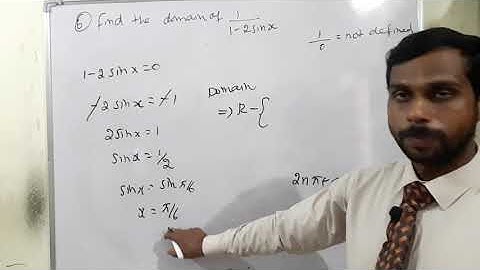 ⑥ Find the domain of 1/(1-2sinx)
1/0 = not defined
1-2sinx=0
-2sinx=-1
2sinx=1
sinx=1/2
sinx=sinπ/6
x=π/6
Domain
⇒ R-{
2nπ+